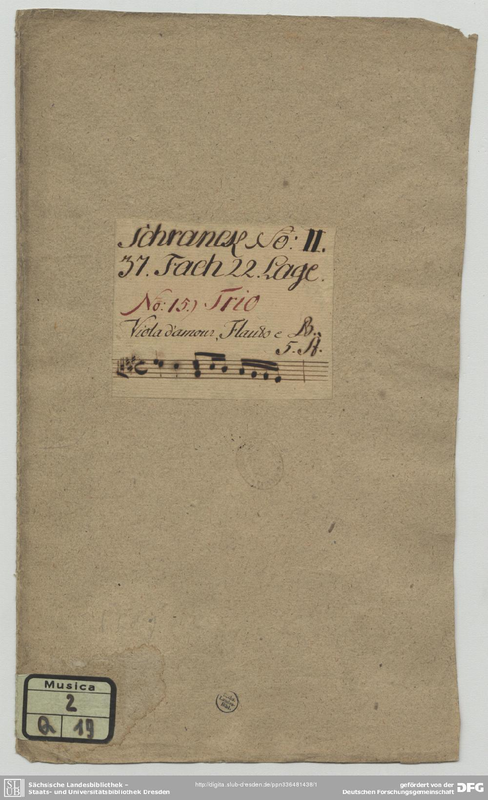 Schranck No: II.
37. Fach 22. Lage.
No: 15.) Trio
Viola d'amour, Flauto e B.
5. St.
Musica
2
Q 19
Sächsische Landesbibliothek -
Staats- und Universitätsbibliothek Dresden
http://digital.slub-dresden.de/ppn336481428/1
gefördert von der
Deutschen Forschungsgemeinschaft DFG